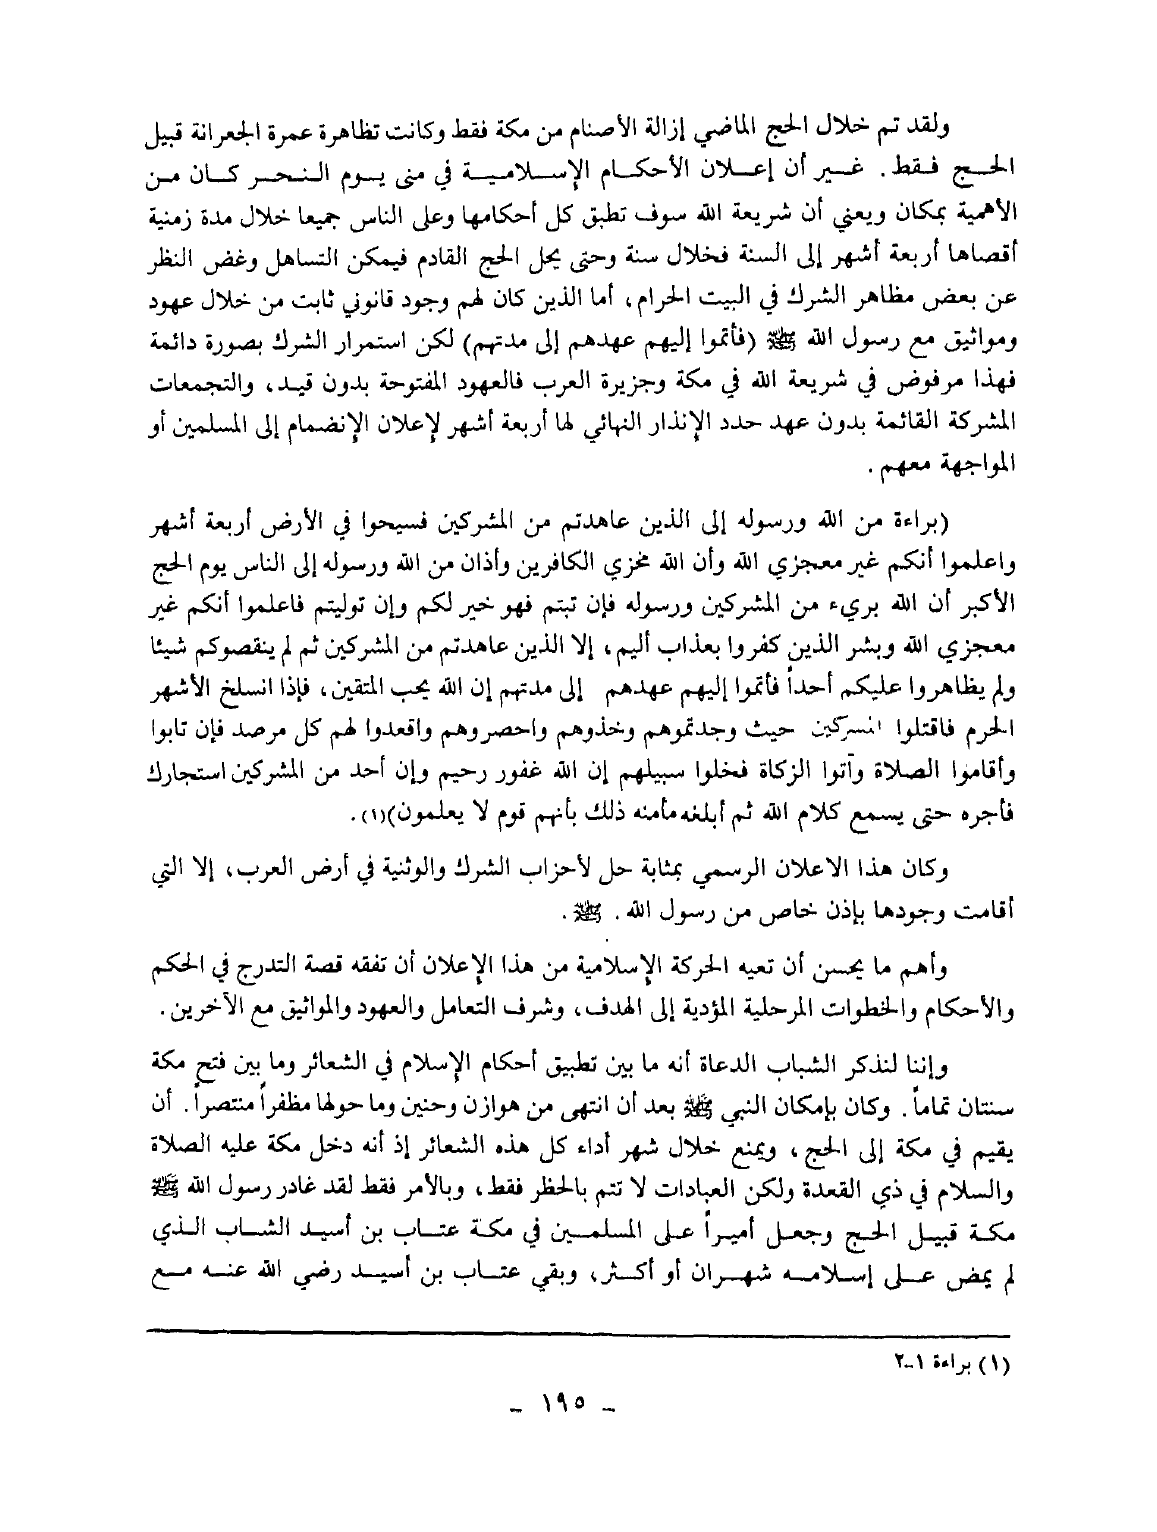 ولقد تم خلال الحج الماضي إزالة الأصنام من مكة فقط وكانت تظاهرة عمرة الجعرانة قبيل
الحج فقط. غير أن إعلان الأحكام الإسلامية في منى يوم النحر كان من
الأهمية بمكان ويعني أن شريعة الله سوف تطبق كل أحكامها وعلى الناس جميعا خلال مدة زمنية
أقصاها أربعة أشهر إلى السنة فخلال سنة وحتى يحل الحج القادم فيمكن التساهل وغض النظر
عن بعض مظاهر الشرك في البيت الحرام، أما الذين كان لهم وجود قانوني ثابت من خلال عهود
ومواثيق مع رسول الله ﷺ (فأتموا إليهم عهدهم إلى مدتهم) لكن استمرار الشرك بصورة دائمة
فهذا مرفوض في شريعة الله في مكة وجزيرة العرب فالعهود المفتوحة بدون قيد، والتجمعات
المشركة القائمة بدون عهد حدد الإنذار النهائي لها أربعة أشهر لإعلان الإنضمام إلى المسلمين أو
المواجهة معهم.
(براءة من الله ورسوله إلى الذين عاهدتم من المشركين فسيحوا في الأرض أربعة أشهر
واعلموا أنكم غير معجزي الله وأن الله مخزي الكافرين وأذان من الله ورسوله إلى الناس يوم الحج
الأكبر أن الله بريء من المشركين ورسوله فإن تبتم فهو خير لكم وإن توليتم فاعلموا أنكم غير
معجزي الله وبشر الذين كفروا بعذاب أليم، إلا الذين عاهدتم من المشركين ثم لم ينقصوكم شيئا
ولم يظاهروا عليكم أحداً فأتموا إليهم عهدهم إلى مدتهم إن الله يحب المتقين، فإذا انسلخ الأشهر
الحرم فاقتلوا المشركين حيث وجدتموهم وخذوهم واحصروهم واقعدوا لهم كل مرصد فإن تابوا
وأقاموا الصلاة وآتوا الزكاة فخلوا سبيلهم إن الله غفور رحيم وإن أحد من المشركين استجارك
فأجره حتى يسمع كلام الله ثم أبلغه مأمنه ذلك بأنهم قوم لا يعلمون)(١).
وكان هذا الاعلان الرسمي بمثابة حل لأحزاب الشرك والوثنية في أرض العرب، إلا التي
أقامت وجودها بإذن خاص من رسول الله. ﷺ.
وأهم ما يحسن أن تعيه الحركة الإسلامية من هذا الإعلان أن تفقه قصة التدرج في الحكم
والأحكام والخطوات المرحلية المؤدية إلى الهدف، وشرف التعامل والعهود والمواثيق مع الآخرين.
وإننا لنذكر الشباب الدعاة أنه ما بين تطبيق أحكام الإسلام في الشعائر وما بين فتح مكة
سنتان تماماً. وكان بإمكان النبي ﷺ بعد أن انتهى من هوازن وحنين وما حولها مظفراً منتصراً. أن
يقيم في مكة إلى الحج، ويمنع خلال شهر أداء كل هذه الشعائر إذ أنه دخل مكة عليه الصلاة
والسلام في ذي القعدة ولكن العبادات لا تتم بالحظر فقط، وبالأمر فقط لقد غادر رسول الله ﷺ
مكة قبيل الحج وجعل أميراً على المسلمين في مكة عتاب بن أسيد الشاب الذي
لم يمض على إسلامه شهران أو أكثر، وبقي عتاب بن أسيد رضي الله عنه مع
(١) براءة ١-٢
- ١٩٥ -